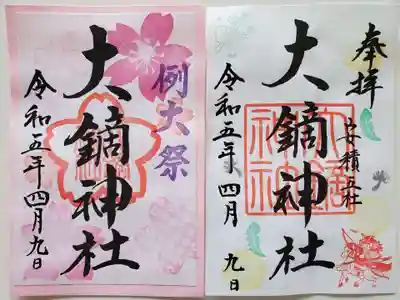 例大祭
大鏑神社
令和五年四月九日
奉拝
安積五社
大鏑神社
令和五年四月九日
大鏑神社